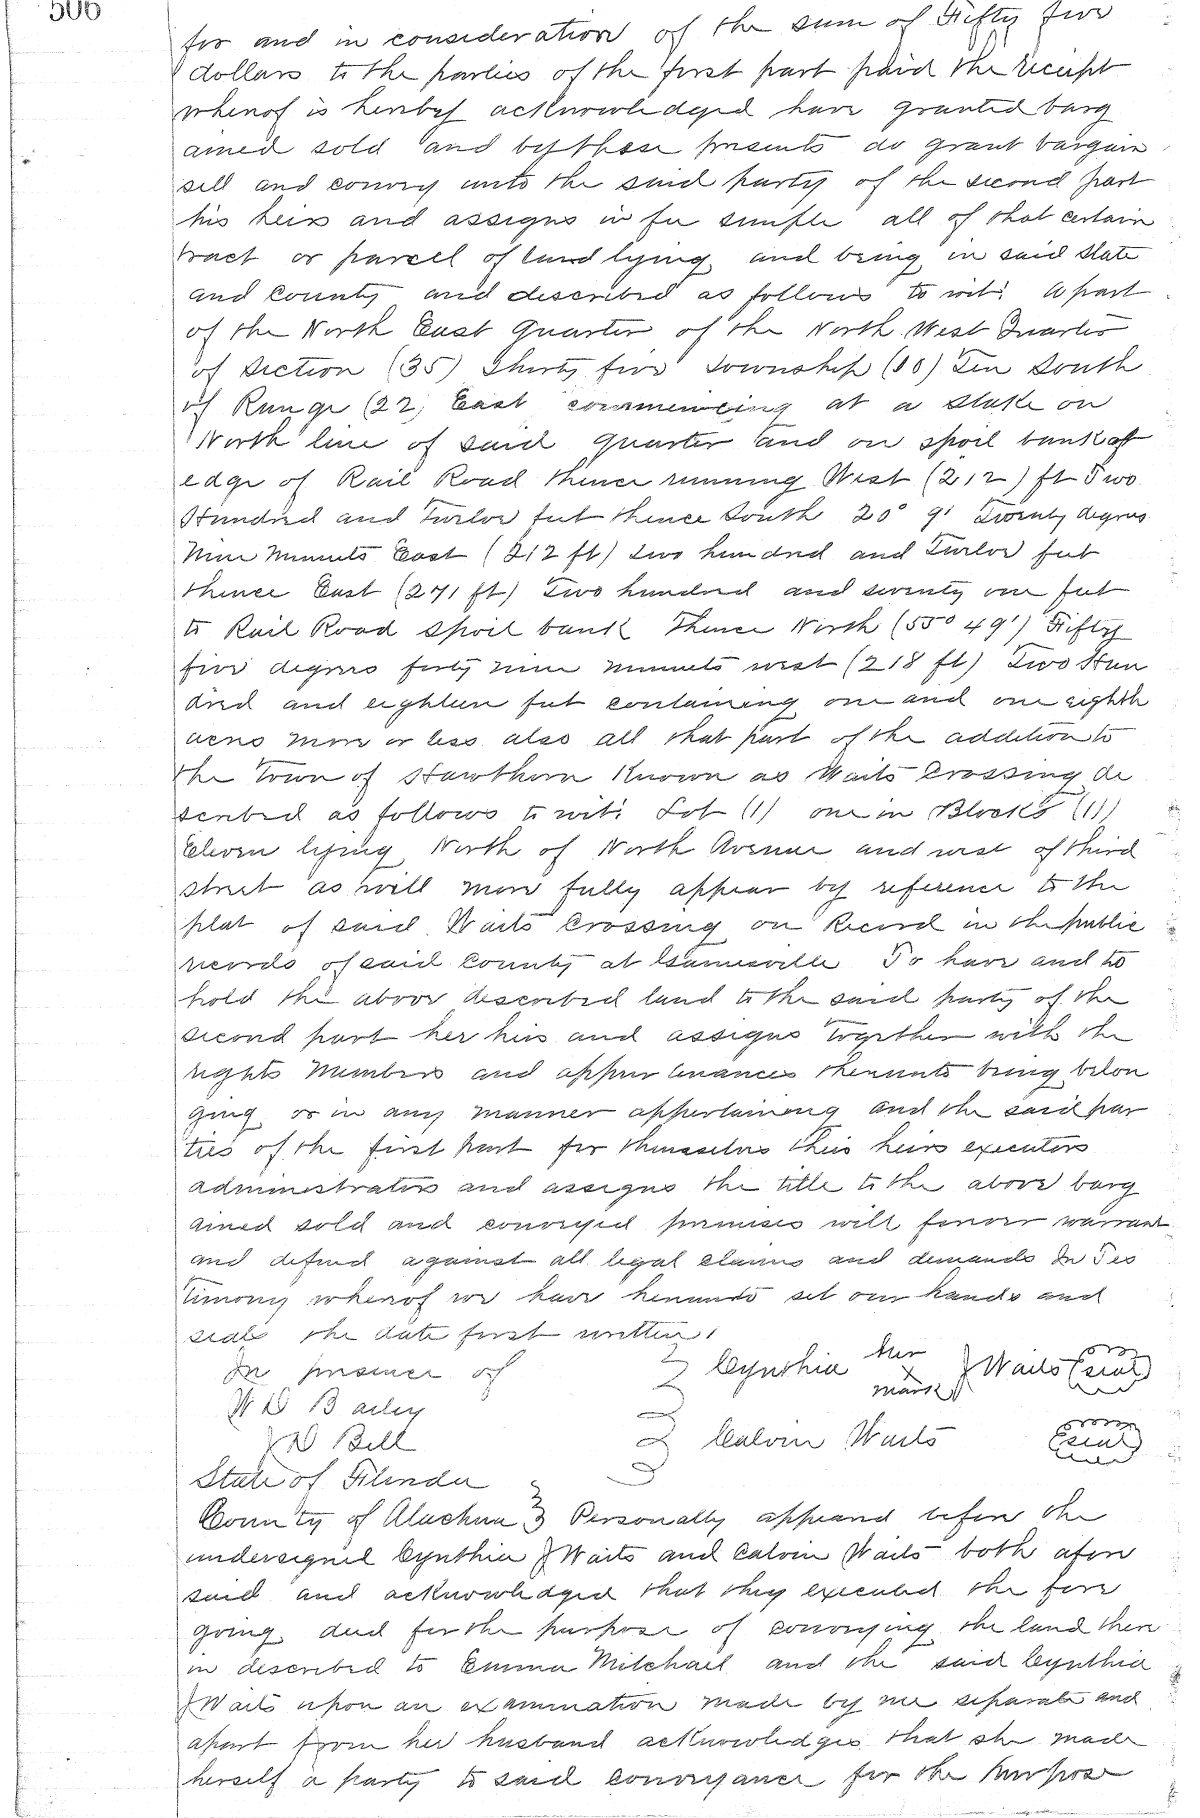 506
for and in consideration of the sum of Fifty five
dollars to the parties of the first part paid the receipt
whereof is hereby acknowledged have granted barg
ained sold and by these presents do grant bargain
sell and convey unto the said party of the second part
his heirs and assigns in fee simple all of that certain
tract or parcel of land lying and being in said State
and County and described as follows to wit: A part
of the North East Quarter of the North West Quarter
of Section (35) Thirty five Township (10) Ten South
of Range (22) East commencing at a Stake on
North line of said quarter and on spoil bank at
edge of Rail Road thence running West (212) ft Two
Hundred and Twelve feet thence South 20° 9' Twenty degrees
Nine Minuets East (212 ft) two hundred and Twelve feet
thence East (271 ft) Two hundred and seventy one feet
to Rail Road Spoil bank Thence North (55° 49') Fifty
five degrees forty nine minuets west (218 ft) Two Hun
dred and eighteen feet containing one and one eighth
acres more or less also all that part of the addition to
the Town of Hawthorn Known as Waits Crossing de
scribed as follows to wit: Lot (1) one in Block (11)
Eleven lying North of North Avenue and west of third
street as will more fully appear by reference to the
plat of said Waits Crossing on Record in the public
records of said County at Gainesville To have and to
hold the above described land to the said party of the
second part her heirs and assigns together with the
rights Members and appurtenances thereunto being belon
ging or in any manner appertaining and the said par
ties of the first part for themselves their heirs executors
administrators and assigns the title to the above barg
ained sold and conveyed premises will forever warrant
and defend against all legal claims and demands In Tes
timony whereof we have hereunto set our hands and
seals the date first written
In presence of Cynthia her x mark J Waits (seal)
W D Bailey
J D Bell Calvin Waits (seal)
State of Florida
County of Alachua } Personally appeared before the
undersigned Cynthia J Waits and Calvin Waits both afore
said and acknowledged that they executed the fore
going deed for the purpose of conveying the land there
in described to Emma Mitchael and the said Cynthia
J Waits upon an examination made by me separate and
apart from her husband acknowledges that she made
herself a party to said conveyance for the purpose